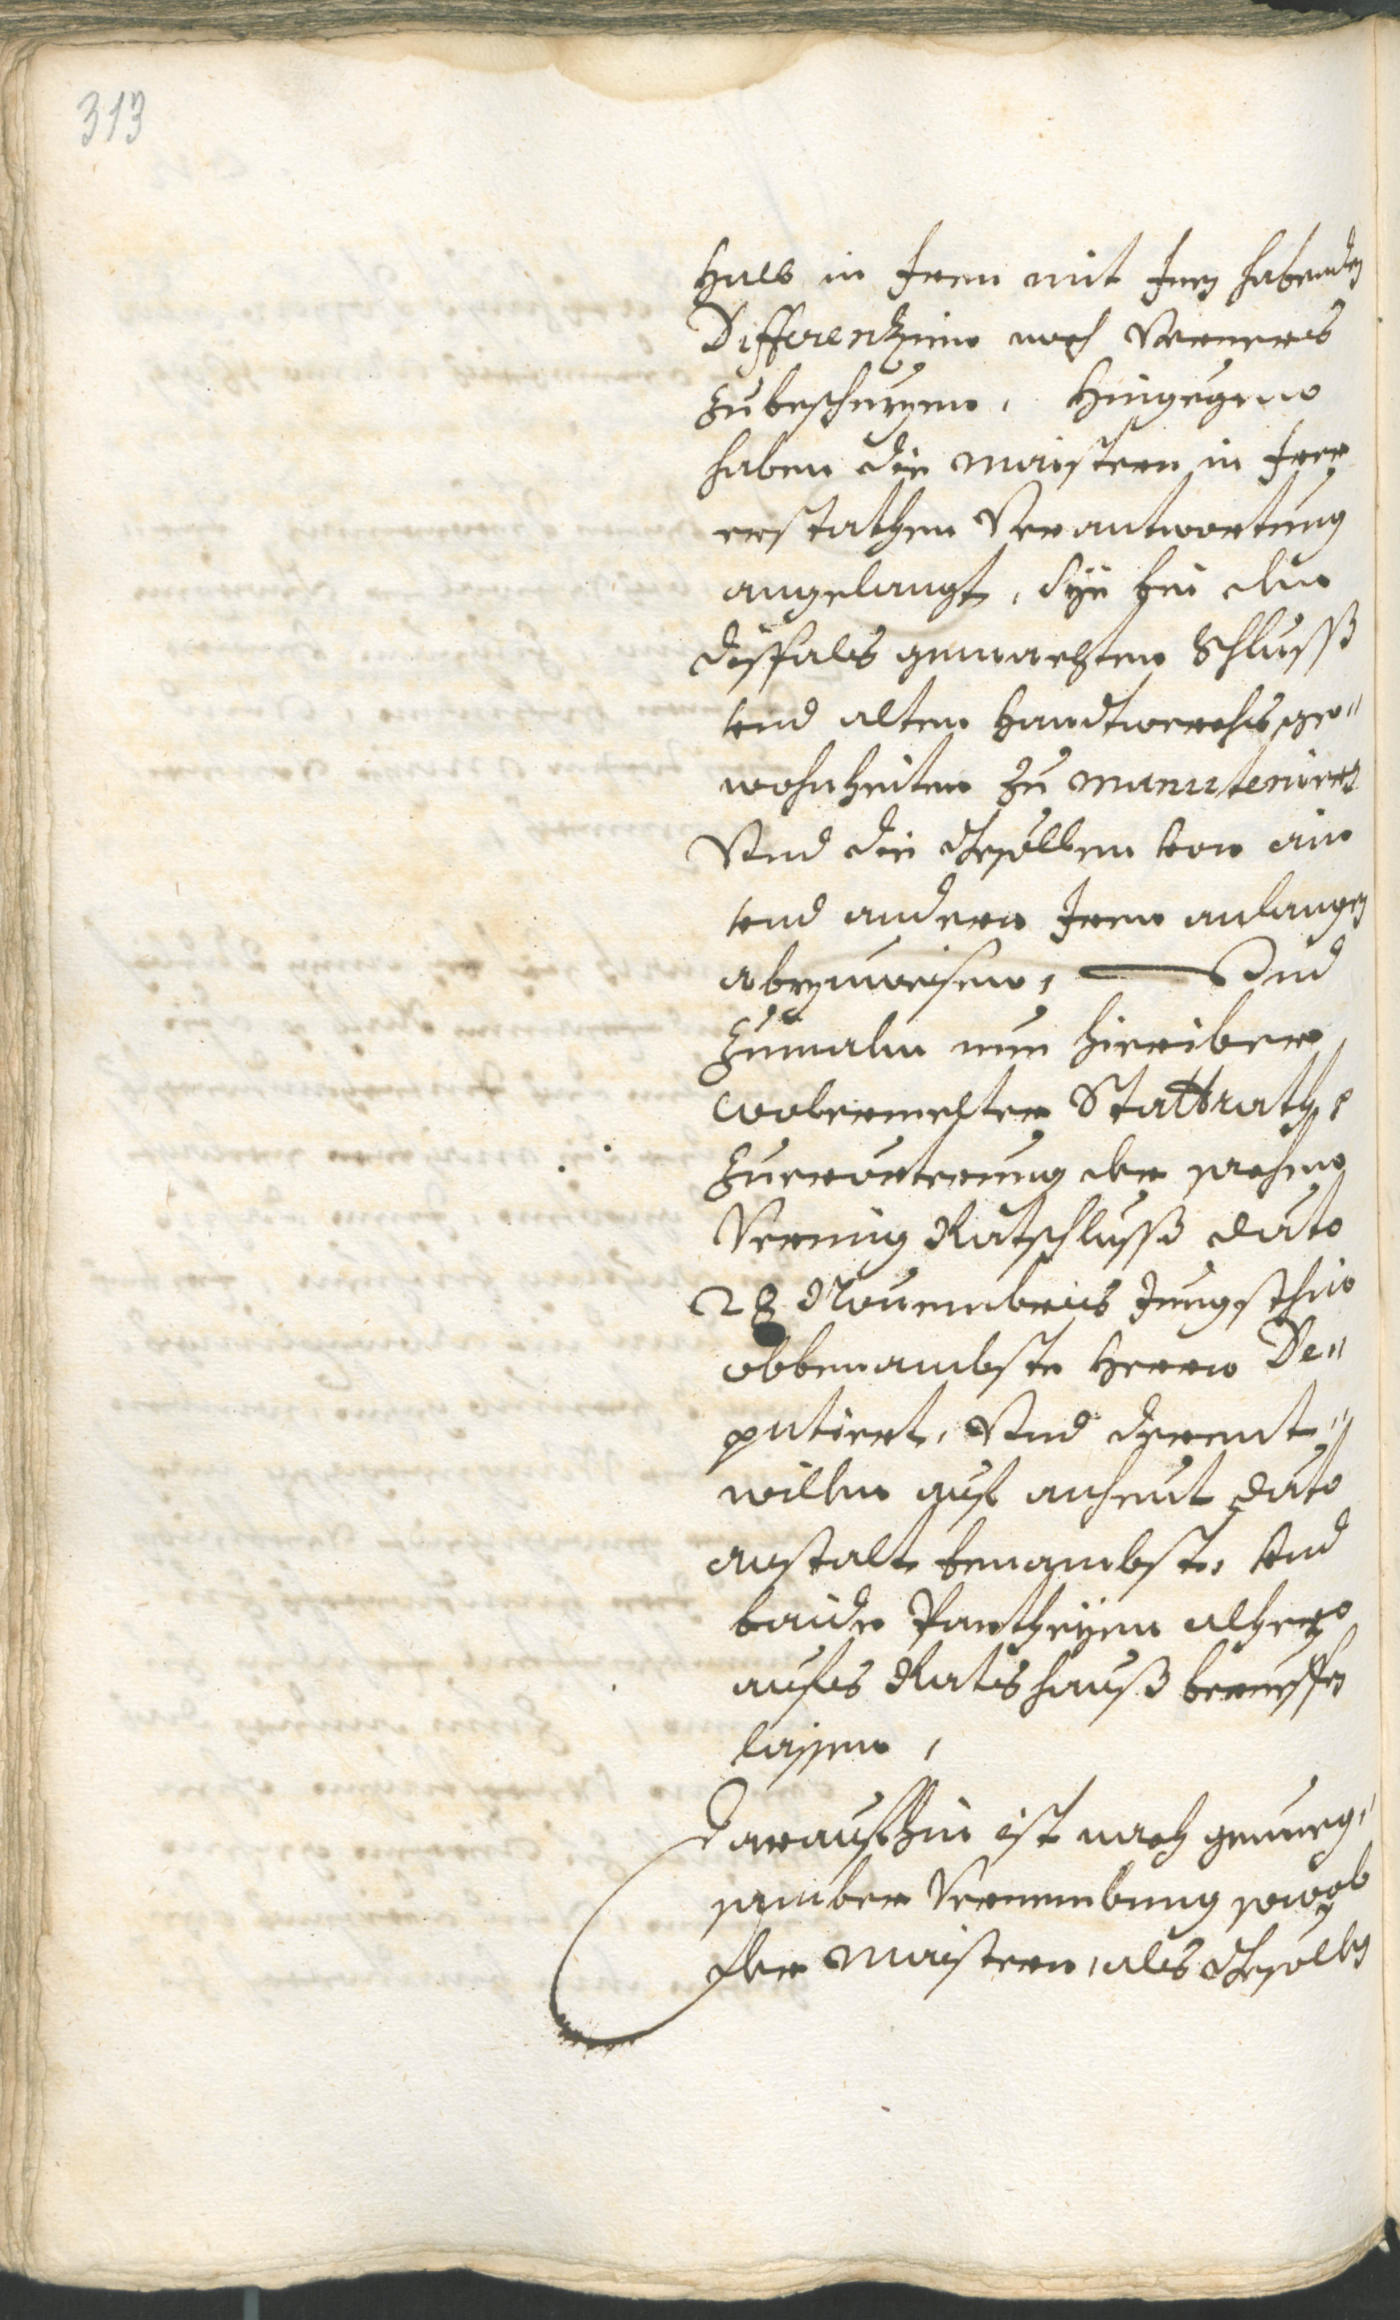 313
halb in Iren mit Inen habenden
Differenzien noch Verners
zubeschuzen, Hingegen
haben die maistern in Irer
erstathen Verantwortung
angelangt, Sÿe bei dem
disfals gemachten Schlusß
vnd alten handtwerchs ge„
wohnheiten zu manuteniren
Vnd die Gesöllen von ain
vnd andern Iren anlangen
abzuweisen, Vnd
Zumalen nun hieriber
wolermelter Stattrath,
Zuerörterung der sachen
Vermig Ratschlusß dato
28 Nouembris Jungsthin
obbenambste Herrn De„
putiert, Vnd derent„
willen auf anheut dato
anstalt benambst, vnd
baide Partheÿen alhero
aufs Ratshauß berueffen
lassen,
Daraufhin ist nach genueg„
samber Vernembung sowol
der Maistern, als Gesöllen